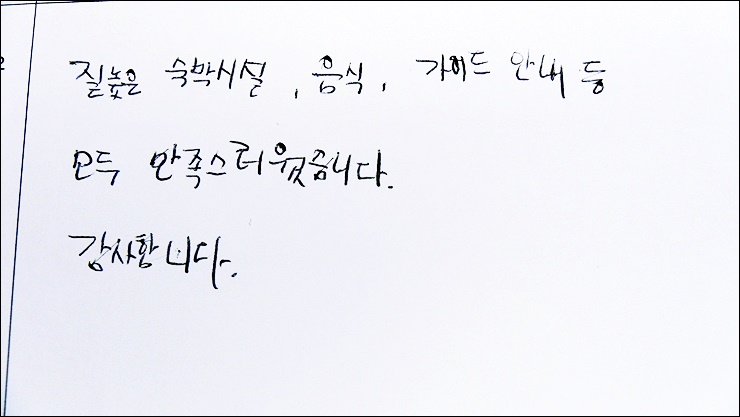 질높은 숙박시설, 음식, 가이드 안내 등
모두 만족스러웠습니다.
감사합니다.